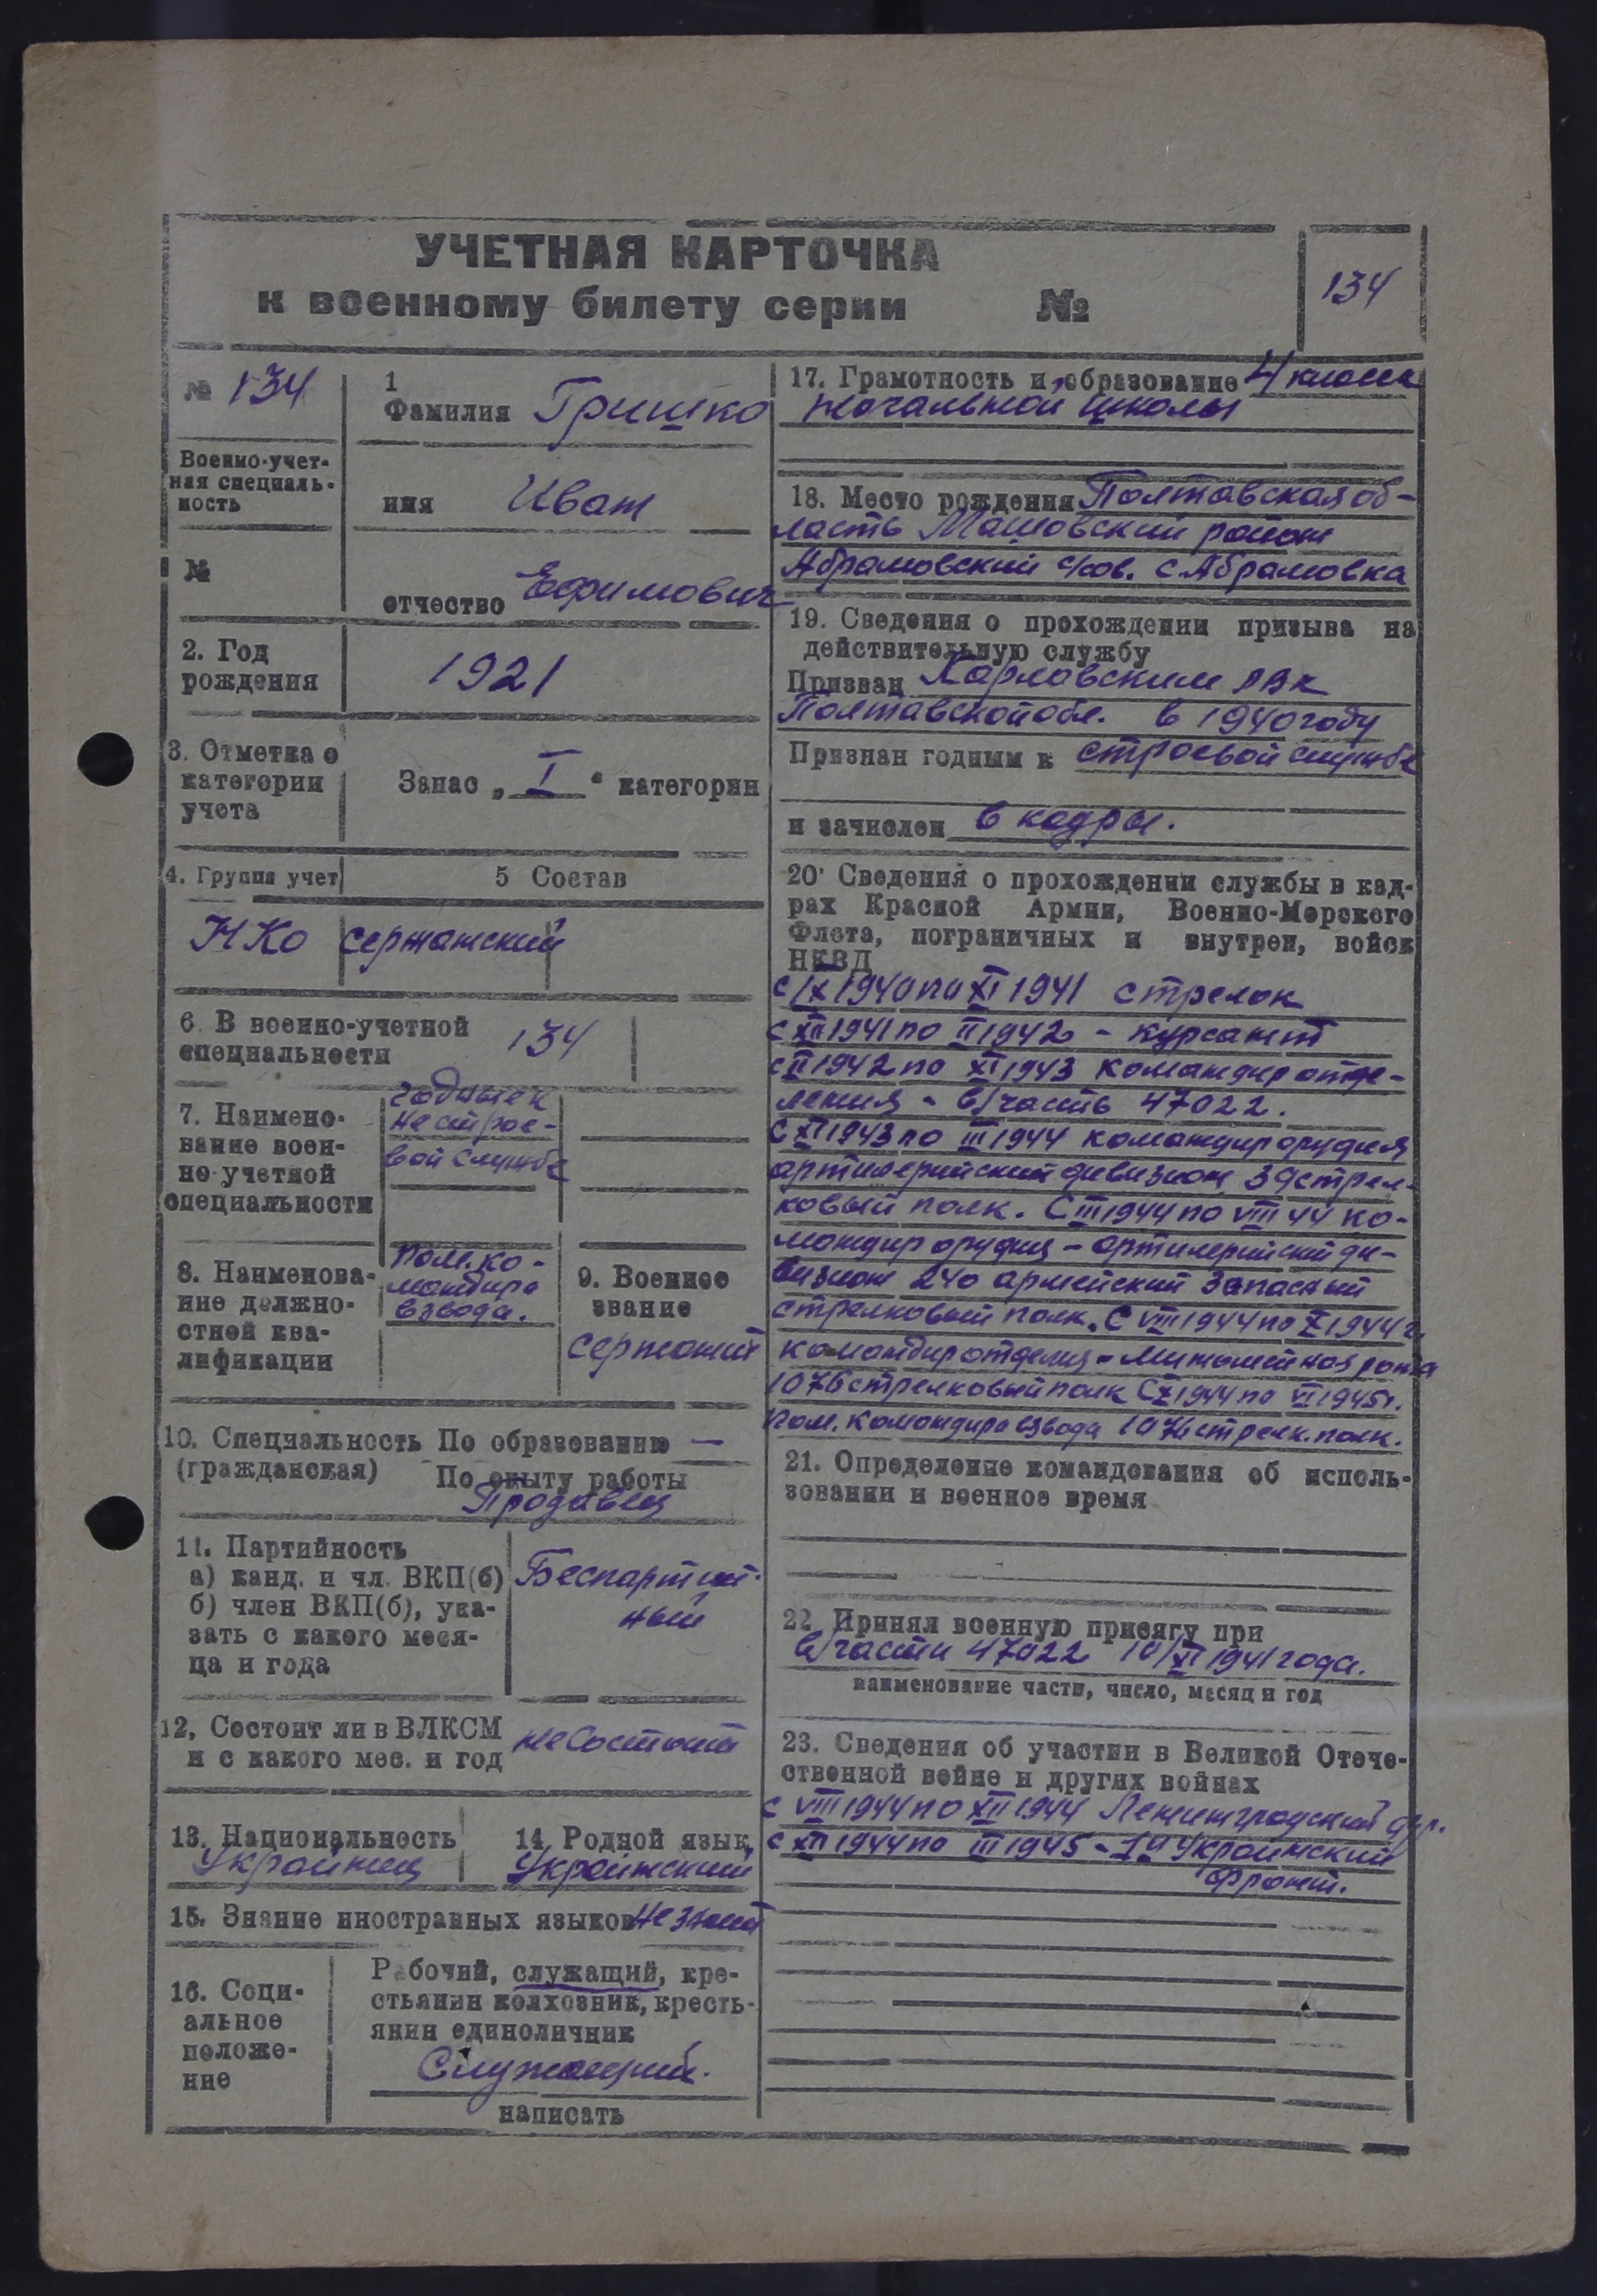 УЧЕТНАЯ КАРТОЧКА
к военному билету серии №
134
№ 134
1
Фамилия Гришко
Военно-учет-
ная специаль-
ность
имя Иван
№
отчество Ефимович
2. Год
рождения
1921
3. Отметка о
категории
учета
Запас „ I “ категории
4. Группа учет
5 Состав
НКО
сержатский
6. В военно-учетной
специальности
134
7. Наимено-
вание воен-
но-учетной
специальности
годный к
не строе-
вой службе
8. Наименова-
ние должно-
стной ква-
лификации
Пом. ко-
мандира
взвода.
9. Военное
звание
сержант
10. Специальность По образованию —
(гражданская) По опыту работы
Продавец
11. Партийность
а) канд. и чл. ВКП(б)
б) член ВКП(б), ука-
зать с какого меся-
ца и года
Беспартий-
ный
12, Состоит ли в ВЛКСМ
и с какого мес. и год
не состоит
13. Национальность
Украинец
14. Родной язык
Украинский
15. Знание иностранных языков не знает
16. Соци-
альное
положе-
ние
Рабочий, служащий, кре-
стьянин колхозник, кресть-
янин единоличник
Служащий.
написать
17. Грамотность и образование 4 класса
начальной школы
18. Место рождения Полтавская об-
ласть Машовский район
Абрамовский с/сов. с Абрамовка
19. Сведения о прохождении призыва на
действительную службу
Призван Карловским РВК
Полтавской обл. в 1940 году
Признан годным к строевой службе
и зачислен в кадры.
20. Сведения о прохождении службы в кад-
рах Красной Армии, Военно-Морского
Флота, пограничных и внутрен, войск
НКВД
с IX 1940 по XI 1941 стрелок
с XII 1941 по II 1942 - курсант
с II 1942 по XI 1943 командир отде-
ления - в/часть 47022.
С XI 1943 по III 1944 командир орудия
артилерийский дивизион 39 стрел-
ковый полк. С III 1944 по VIII 44 ко-
мандир орудия - артилерийский ди-
визион 240 армейский запасный
стрелковый полк. С VIII 1944 по X 1944 г.
командир отделия - минометная рота
1076 стрелковый полк С X 1944 по VI 1945 г.
Пом. командира взвода 1076 стрелк. полк.
21. Определение командования об исполь-
зовании и военное время
22. Принял военную присягу при
в/части 47022 10/XI 1941 года.
наименование части, число, месяц и год
23. Сведения об участии в Великой Отече-
ственной войне и других войнах
с VIII 1944 по XII 1944 Ленинградский фр.
с XII 1944 по III 1945 - 1й Украинский
фронт.